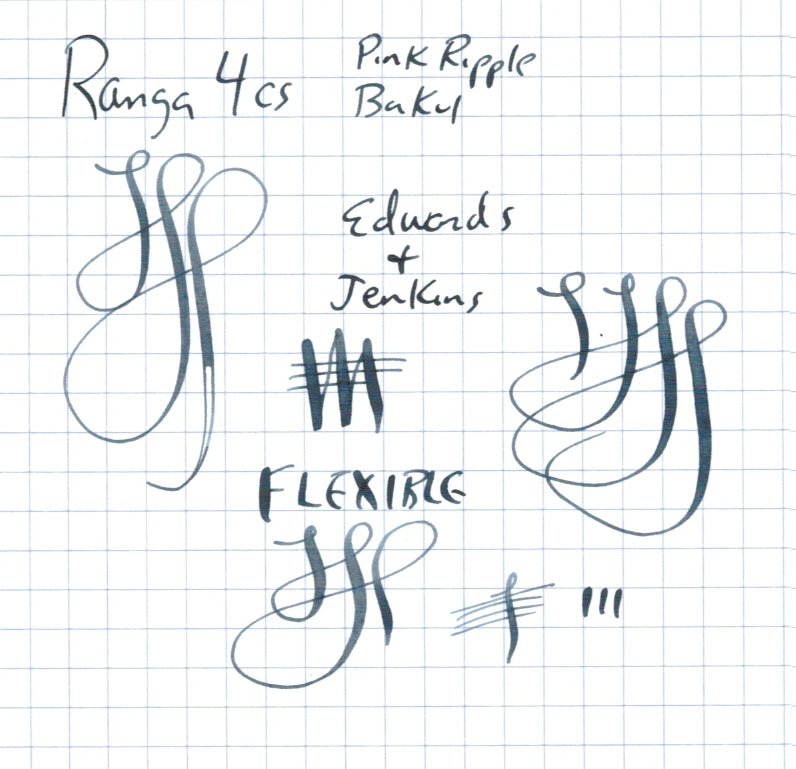 Ranga 4cs
Pink Ripple
BaKul
Edwards
+
Jenkins
FLEXIBLE